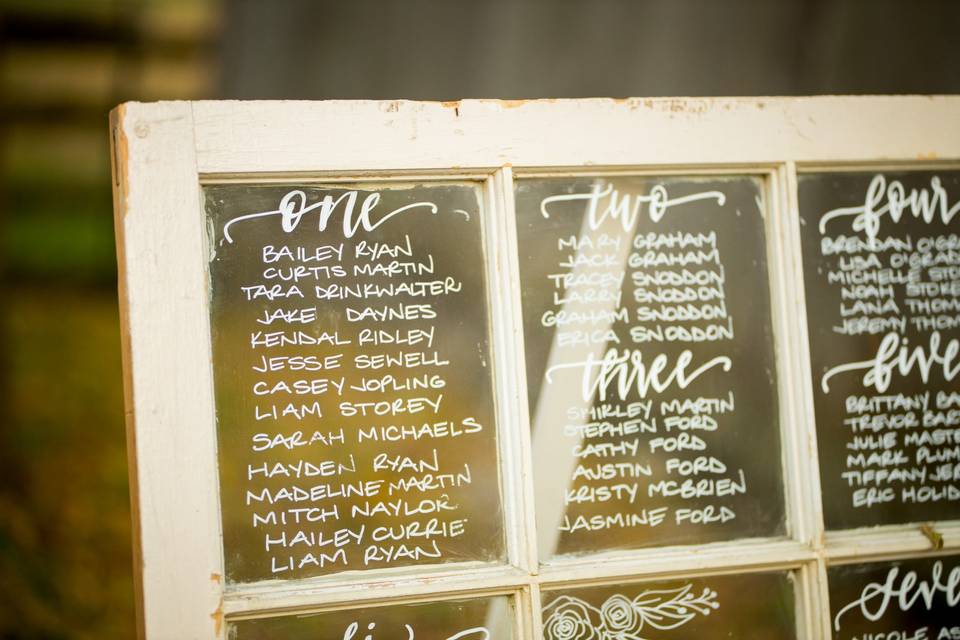 one
BAILEY RYAN
CURTIS MARTIN
TARA DRINKWALTER
JAKE DAYNES
KENDAL RIDLEY
JESSE SEWELL
CASEY JOPLING
LIAM STOREY
SARAH MICHAELS
HAYDEN RYAN
MADELINE MARTIN
MITCH NAYLOR
HAILEY CURRIE
LIAM RYAN
two
MARY GRAHAM
JACK GRAHAM
TRACEY SNODDON
LARRY SNODDON
GRAHAM SNODDON
ERICA SNODDON
three
SHIRLEY MARTIN
STEPHEN FORD
CATHY FORD
AUSTIN FORD
KRISTY MCBRIEN
JASMINE FORD
four
BRENDAN
LISA
MICHELLE
NOAH
LANA
JEREMY
five
BRITTANY
TREVOR
JULIE
MARK
TIFFANY
ERIC